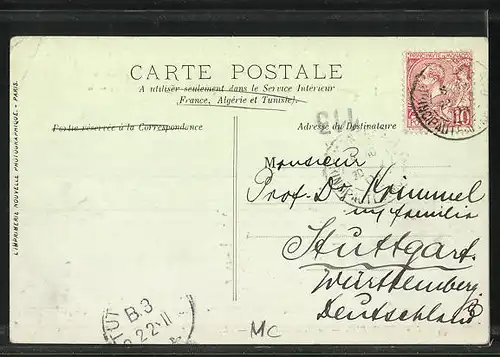 CARTE POSTALE
A utiliser seulement dans le Service Intérieur
(France, Algérie et Tunisie).
Partie réservée à la Correspondance
Adresse du Destinataire
113
10
Monsieur
Prof. D. Krimmel
Stuttgart.
Württemberg.
Deutschland
B.3
MC
L'IMPRIMERIE NOUVELLE PHOTOGRAPHIQUE - PARIS.